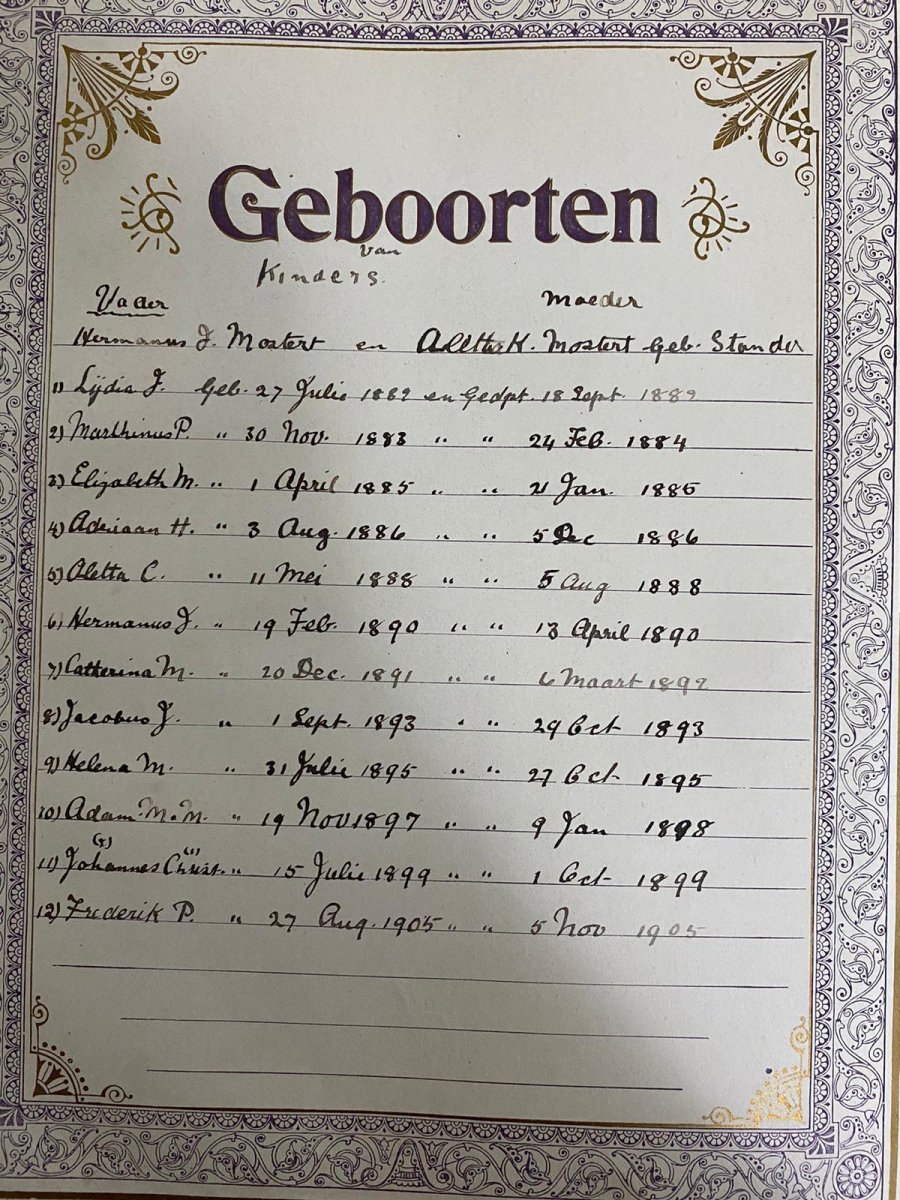 Geboorten
van
Kinders.
Vader Moeder
Hermanus J. Mostert en Aletta K. Mostert geb. Stander
1) Lÿdia J. Geb. 27 Julie 1882 en Gedpt. 18 Sept. 1882
2) Marthinus P. " 30 Nov. 1883 " " 24 Feb. 1884
3) Elizabeth M. " 1 April 1885 " " 21 Jan. 1885
4) Adriaan H. " 3 Aug. 1886 " " 5 Dec 1886
5) Aletta C. " 11 Mei 1888 " " 5 Aug 1888
6) Hermanus J. " 19 Feb. 1890 " " 13 April 1890
7) Catherina M. " 20 Dec. 1891 " " 6 Maart 1892
8) Jacobus J. " 1 Sept. 1893 " " 29 Oct 1893
9) Helena M. " 31 Julie 1895 " " 27 Oct 1895
10) Adam M. M. " 19 Nov 1897 " " 9 Jan 1898
11) Johannes Christ. " 15 Julie 1899 " " 1 Oct 1899
12) Frederik P. " 27 Aug. 1905 " " 5 Nov 1905